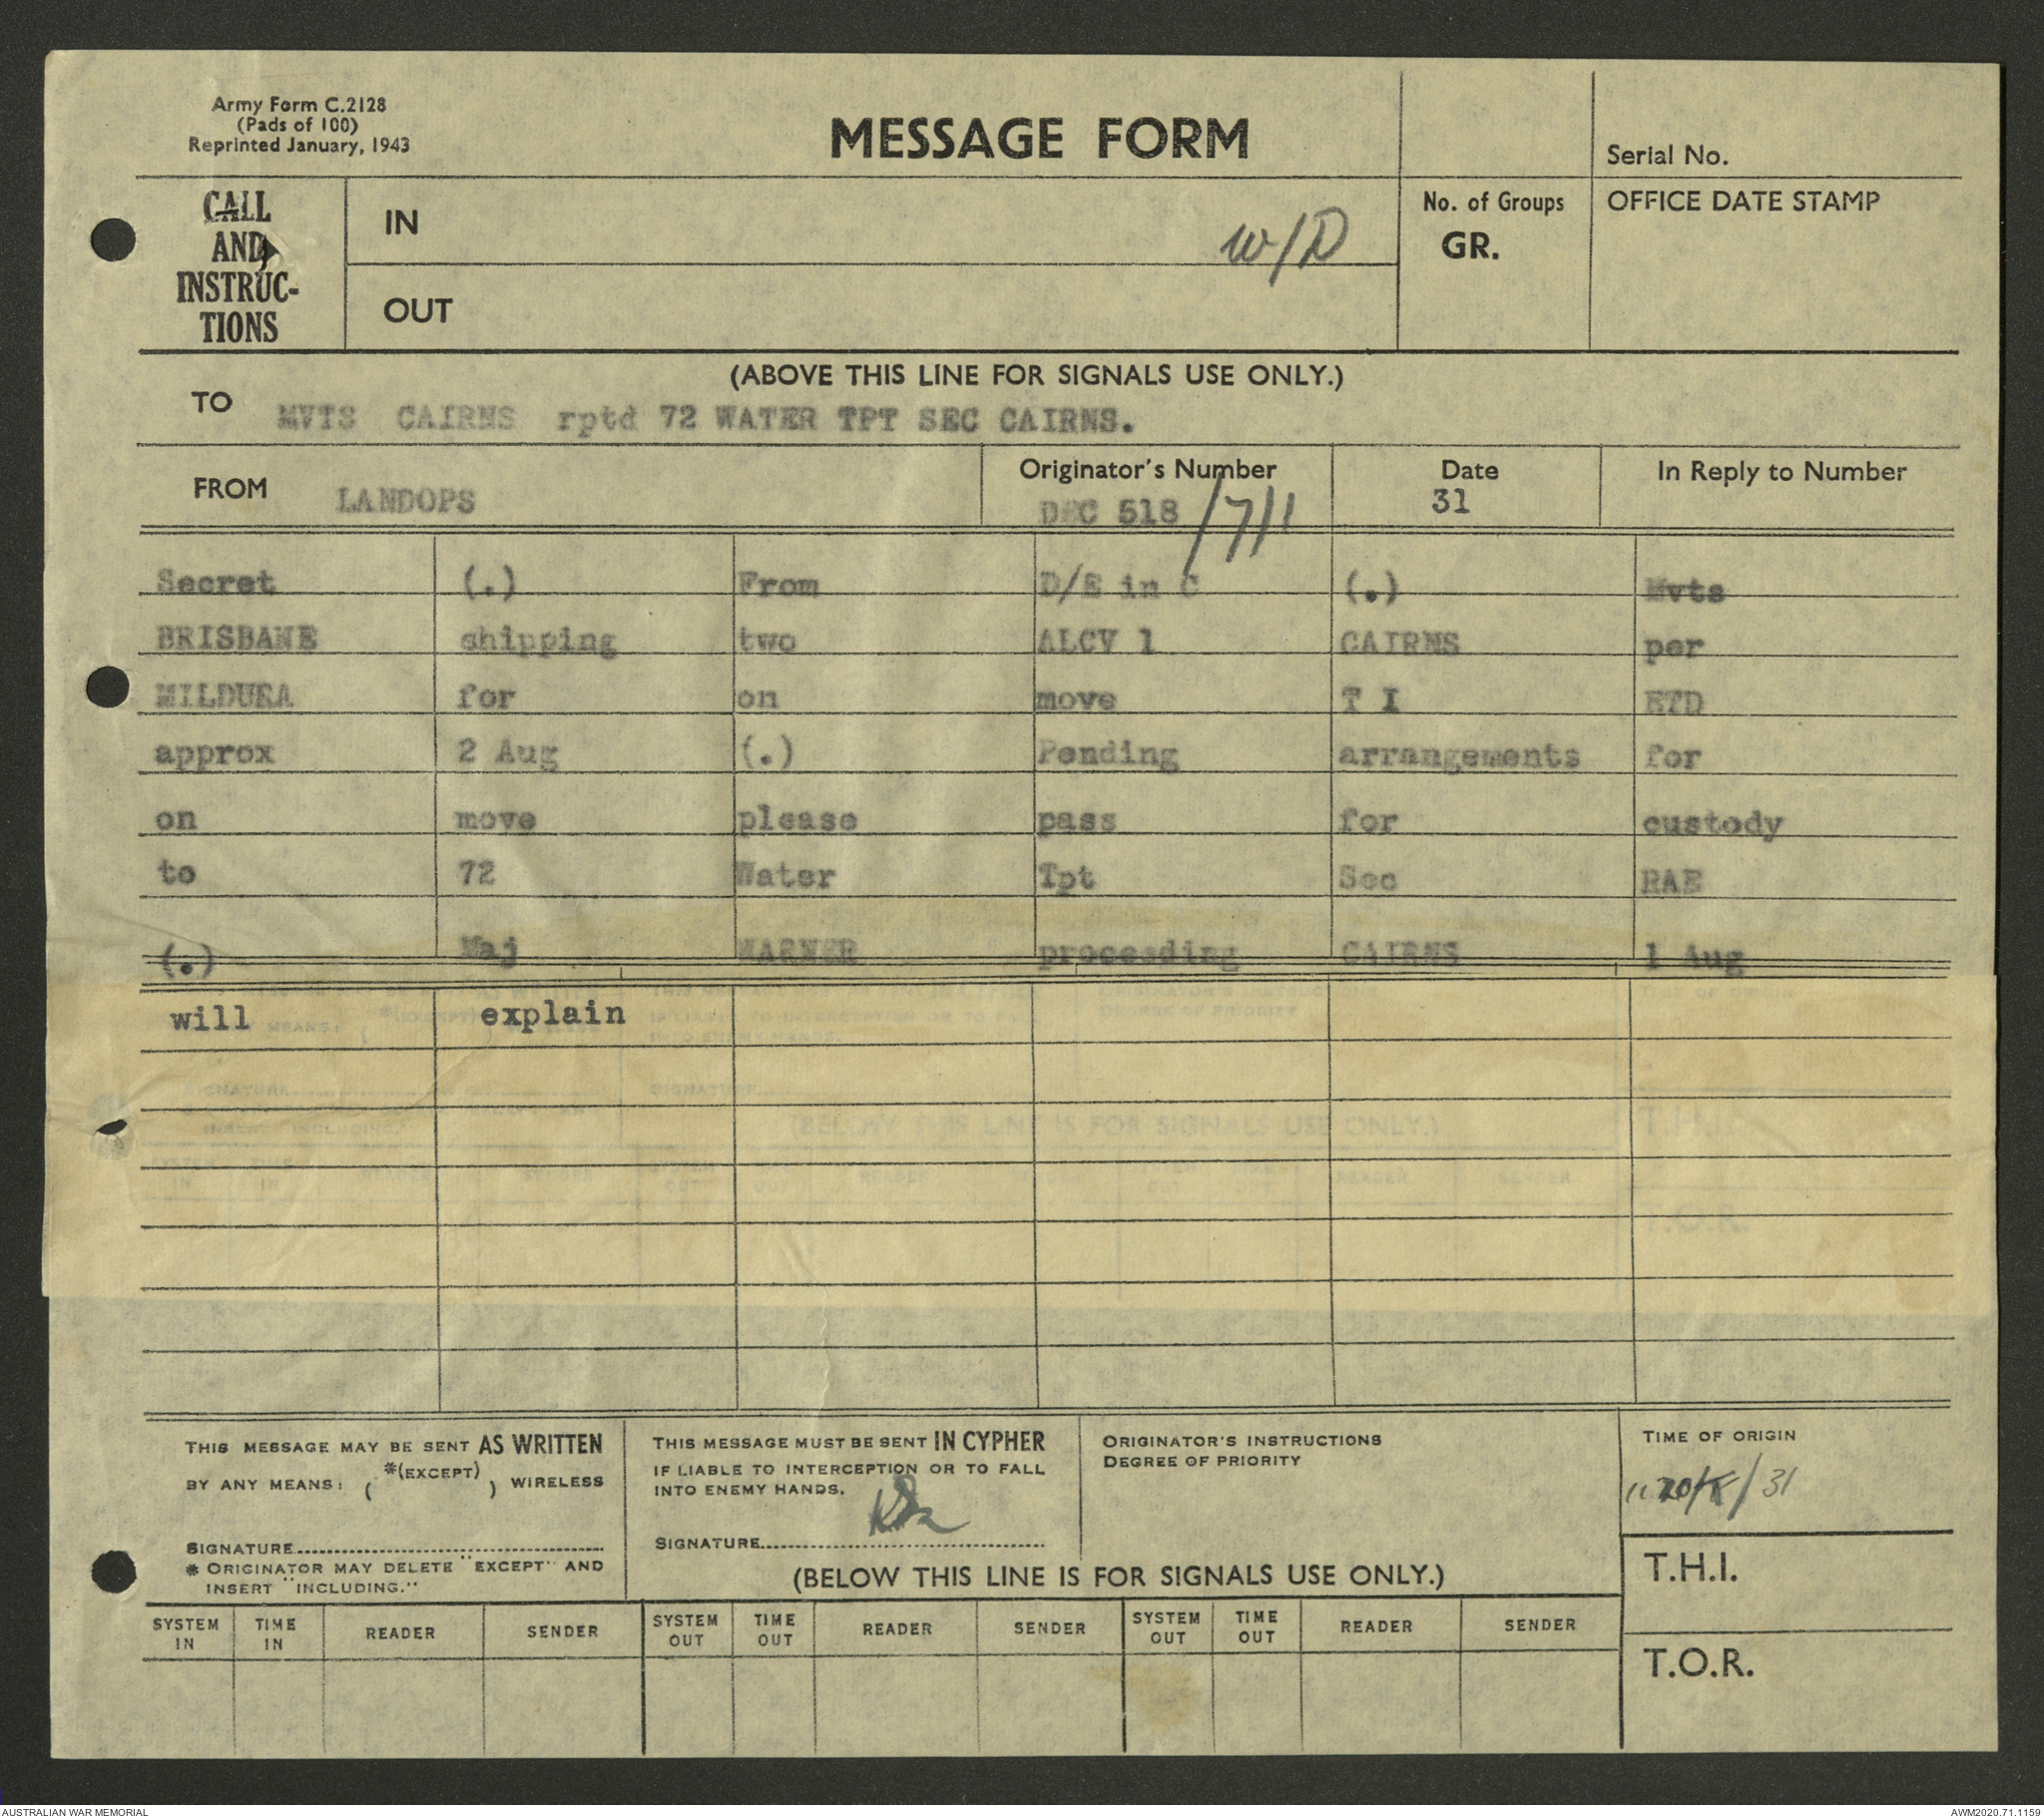 Army Form C.2128
(Pads of 100)
Reprinted January, 1943
MESSAGE FORM
Serial No.
CALL
AND
INSTRUC-
TIONS
IN
w/D
No. of Groups
GR.
OFFICE DATE STAMP
OUT
(ABOVE THIS LINE FOR SIGNALS USE ONLY.)
TO MVTS CAIRNS rptd 72 WATER TPT SEC CAIRNS.
FROM LANDOPS
Originator's Number
DEC 518/7/1
Date
31
In Reply to Number
Secret (.) From D/E in C (.) Mvts
BRISBANE shipping two ALCV 1 CAIRNS per
MILDURA for on move T I ETD
approx 2 Aug (.) Pending arrangements for
on move please pass for custody
to 72 Water Tpt Sec RAE
(.) Maj WARNER proceeding CAIRNS 1 Aug
will explain
THIS MESSAGE MAY BE SENT AS WRITTEN
BY ANY MEANS: ( *(EXCEPT) ) WIRELESS
SIGNATURE
* ORIGINATOR MAY DELETE "EXCEPT" AND
INSERT "INCLUDING."
THIS MESSAGE MUST BE SENT IN CYPHER
IF LIABLE TO INTERCEPTION OR TO FALL
INTO ENEMY HANDS.
SIGNATURE
ORIGINATOR'S INSTRUCTIONS
DEGREE OF PRIORITY
TIME OF ORIGIN
/31
(BELOW THIS LINE IS FOR SIGNALS USE ONLY.)
T.H.I.
SYSTEM IN TIME IN READER SENDER SYSTEM OUT TIME OUT READER SENDER SYSTEM OUT TIME OUT READER SENDER
T.O.R.
AUSTRALIAN WAR MEMORIAL
AWM2020.71.1159